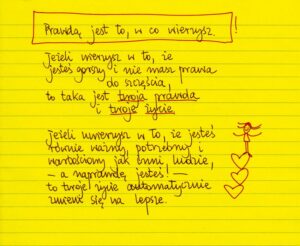 Prawdą jest to, w co wierzysz. !
Jeżeli wierzysz w to, że
jesteś gorszy i nie masz prawa
do szczęścia,
to taka jest twoja prawda
i twoje życie.
Jeżeli uwierzysz w to, że jesteś
równie ważny, potrzebny i
wartościowy jak inni ludzie,
- a naprawdę jesteś! -
to twoje życie automatycznie
zmieni się na lepsze.